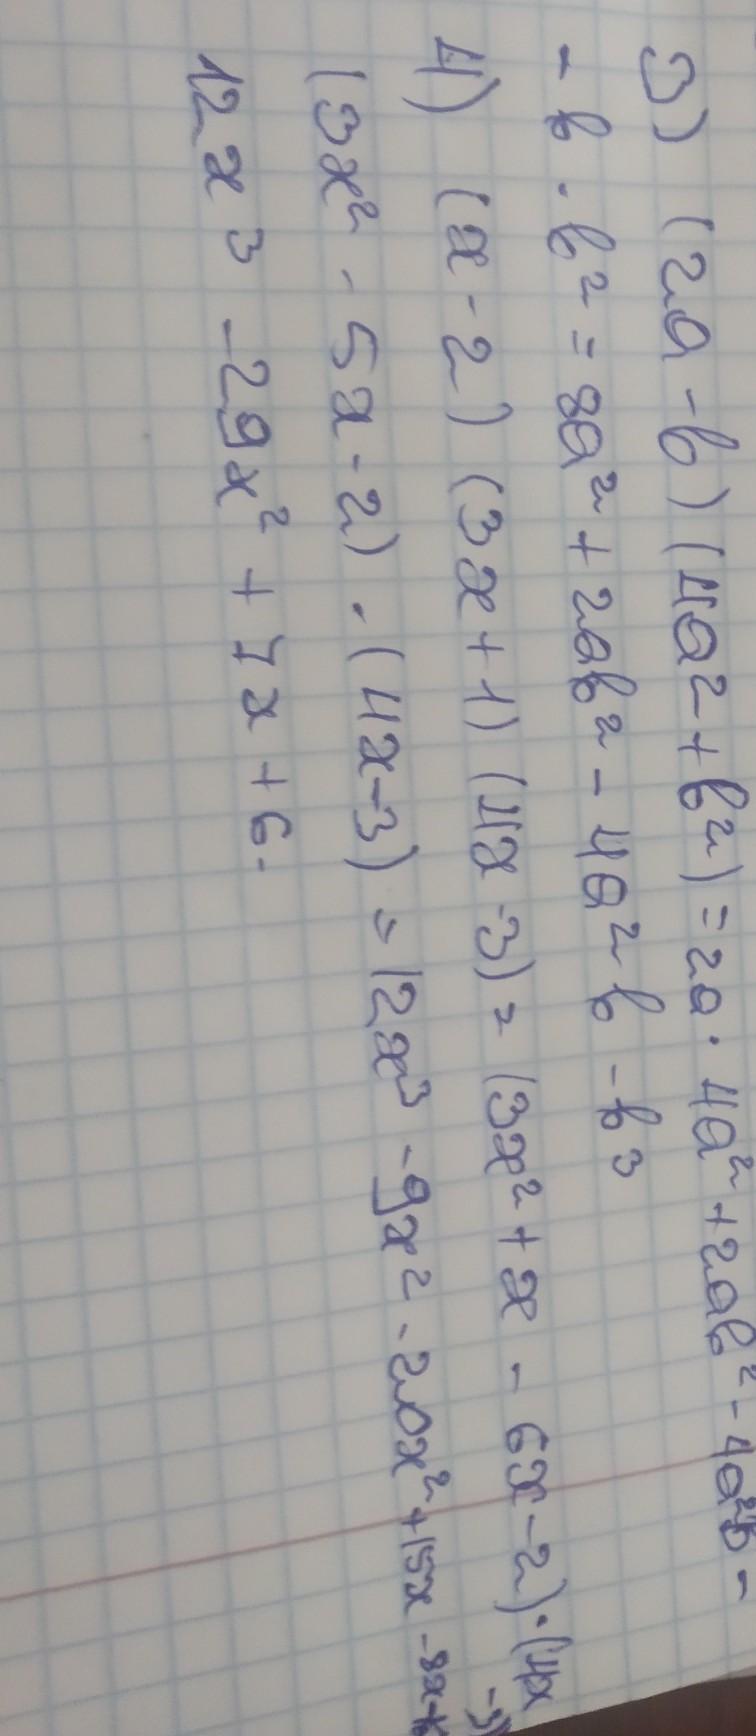 3) (2a - b)(4a² + b²) = 2a · 4a² + 2ab² - 4a²b -
- b · b² = 8a² + 2ab² - 4a²b - b³
4) (x - 2)(3x + 1)(4x - 3) = (3x² + x - 6x - 2) · (4x - 3)
(3x² - 5x - 2) · (4x - 3) = 12x³ - 9x² - 20x² + 15x - 8x + 6
12x³ - 29x² + 7x + 6.